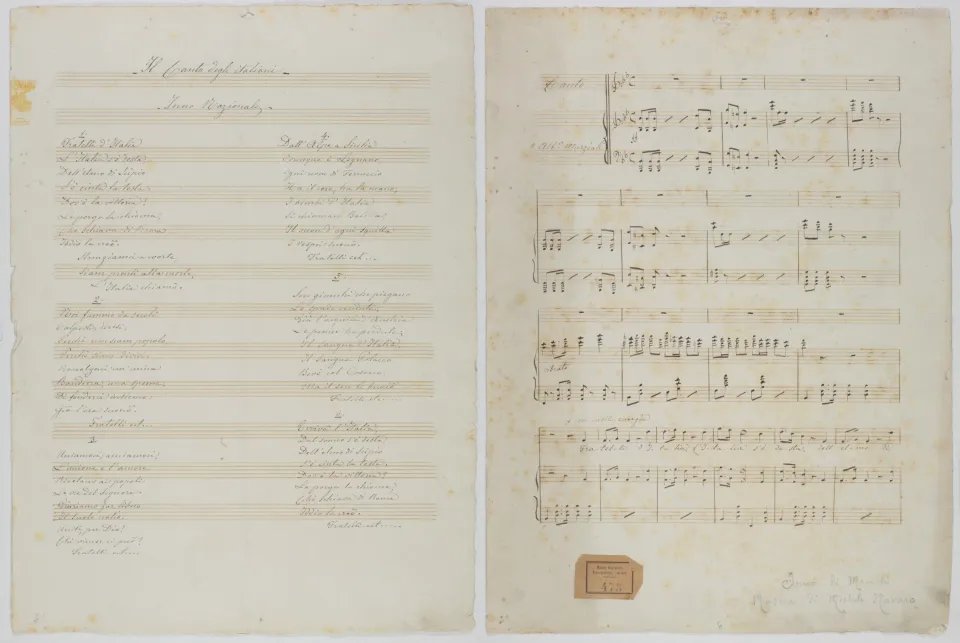 Il Canto degli italiani
Inno Nazionale
1.
Fratelli d'Italia
L'Italia s'è desta
Dell'elmo di Scipio
S'è cinta la testa.
Dov'è la vittoria?
Le porga la chioma,
Che schiava di Roma
Iddio la creò.
Stringiamci a coorte
Siam pronti alla morte
L'Italia chiamò.
2.
Noi fummo da secoli
Calpesti, derisi
Perchè non siam popolo
Perchè siam divisi
Raccolgaci un'unica
Bandiera, una speme
Di fonderci insieme
Già l'ora suonò.
Fratelli ect...
3.
Uniamoci, amiamoci,
L'unione e l'amore
Rivelano ai popoli
Le vie del Signore.
Giuriamo far libero
Il suolo natio
Uniti, per Dio!
Chi vincer ci può?
Fratelli ect...
4.
Dall'Alpi a Sicilia
Dovunque è Legnano,
Ogni uom di Ferruccio
Ha il core, ha la mano,
I bimbi d'Italia
Si chiaman Balilla,
Il suon d'ogni squilla
I vespri suonò.
Fratelli ect...
5.
Son giunchi che piegano
Le spade vendute,
Già l'aquila d'Austria
Le penne ha perdute,
Il sangue d'Italia,
Il sangue Polacco
Bevè col Cosacco,
Ma il cor le bruciò
Fratelli ect...
Evviva l'Italia,
Dal sonno s'è desta
Dell'elmo di Scipio
S'è cinta la testa
Dov'è la vittoria?
Le porga la chioma,
Chè schiava di Roma
Iddio la creò.
Fratelli ect...
Canto
All.º Marziale
ff
Fra telli d'I ta lia, l'I ta lia s'è de sta, dell' el mo di
475
Inno di Mameli
Musica di Michele Novaro